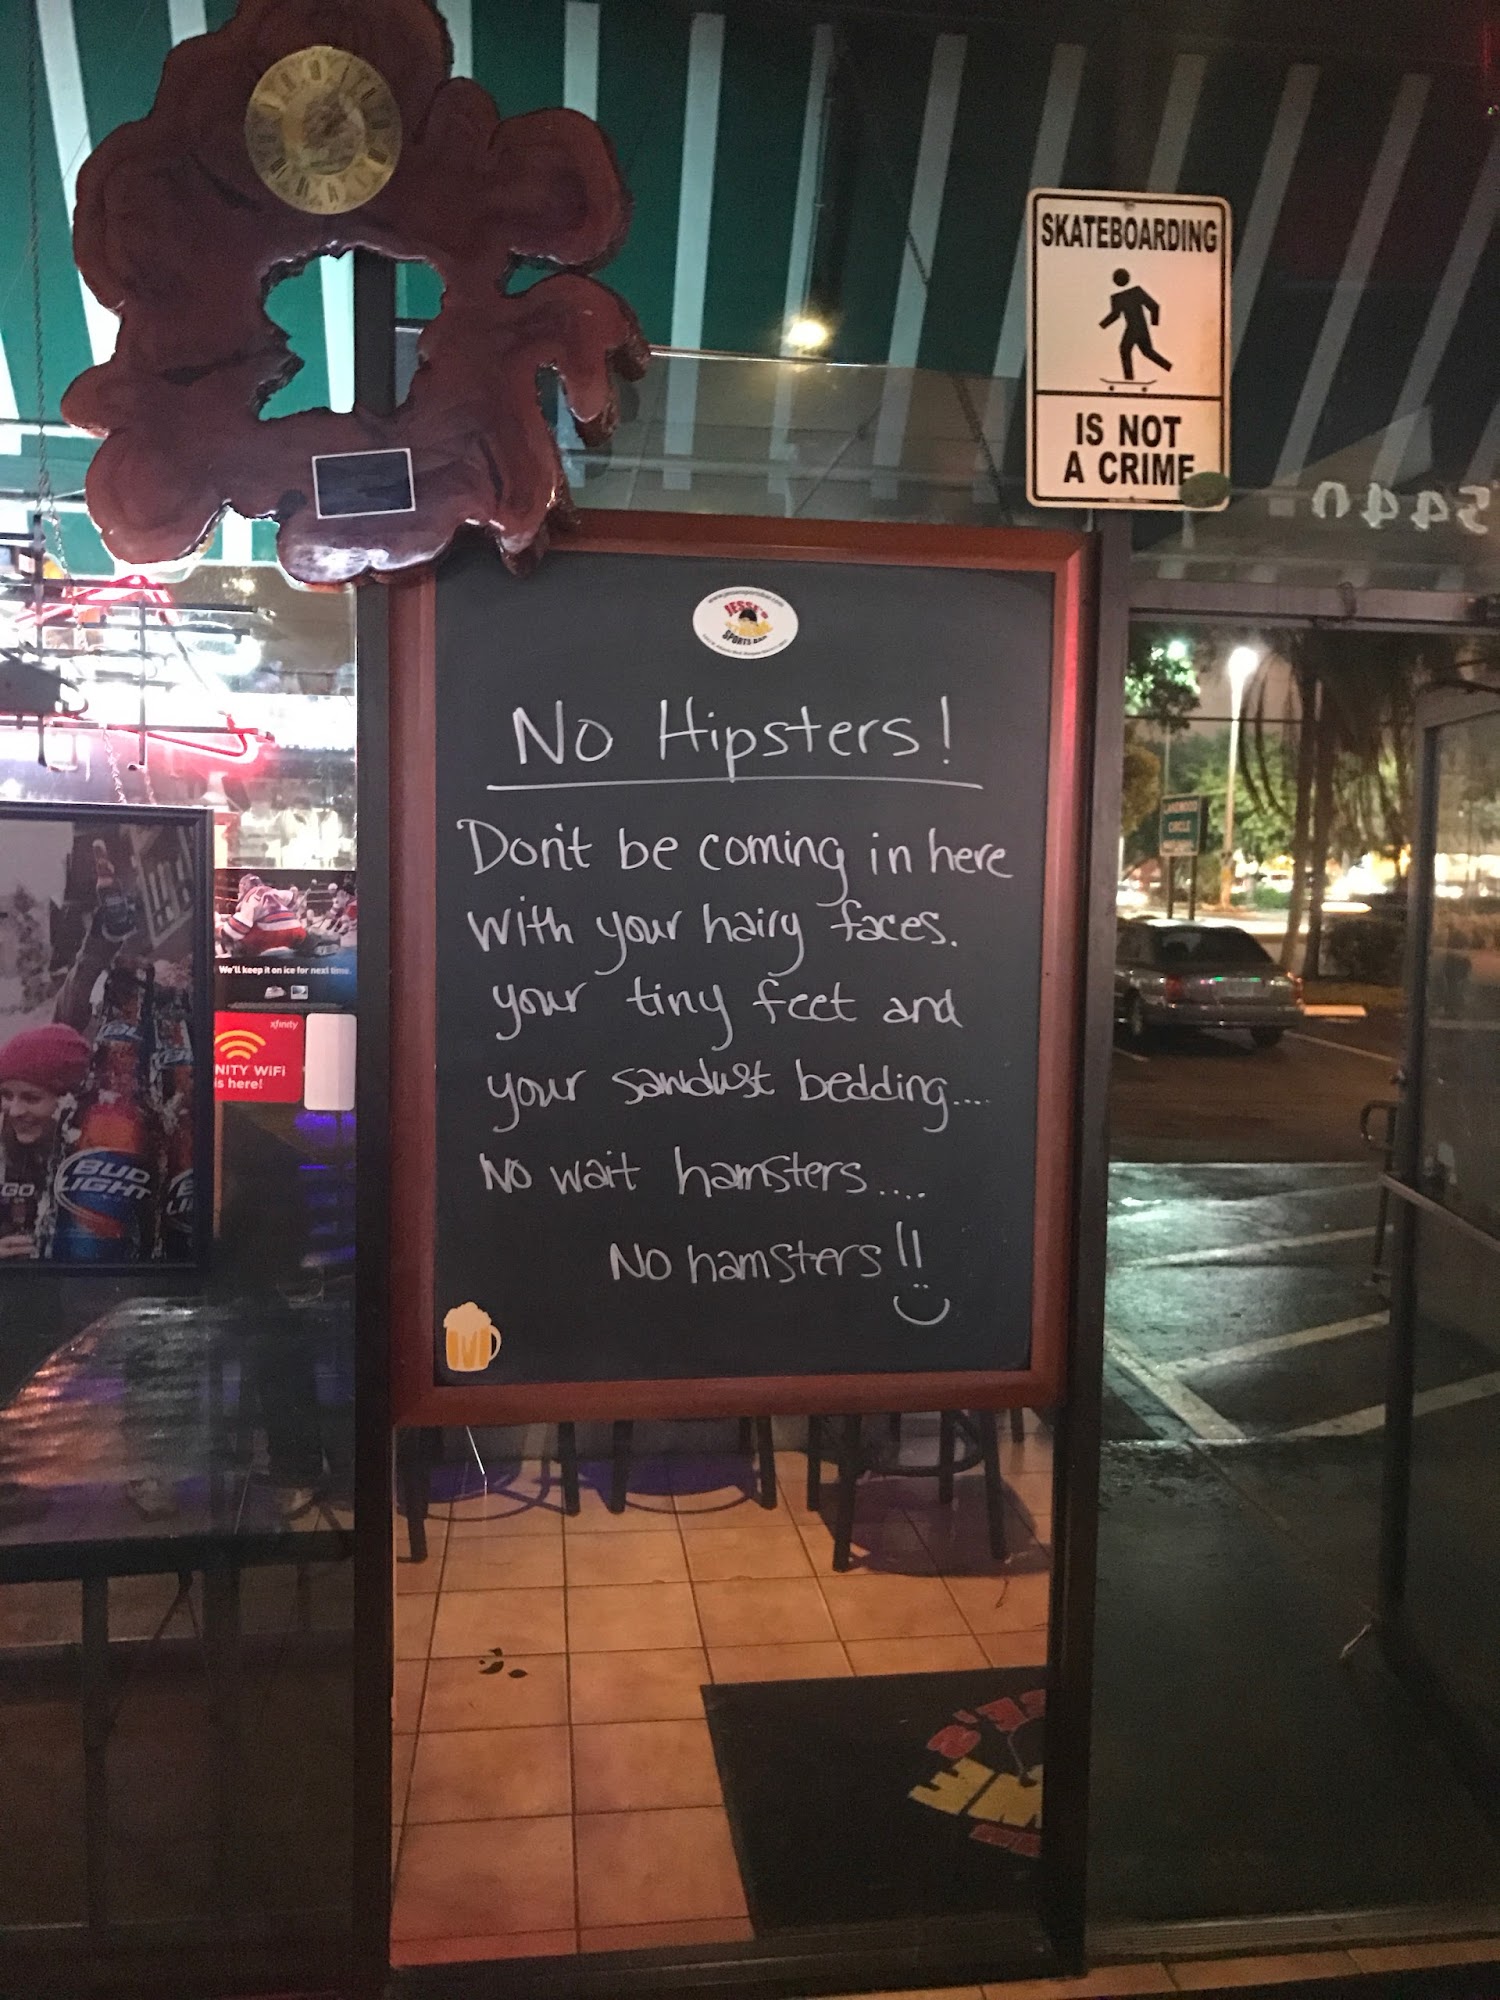 SKATEBOARDING
IS NOT
A CRIME
5440
JESSE'S
SPORTS BAR
No Hipsters!
Don't be coming in here
with your hairy faces.
your tiny feet and
your sawdust bedding....
No wait hamsters....
No hamsters!!
We'll keep it on ice for next time.
xfinity
NITY WiFi
is here!
BUD
LIGHT
GO
CIRCLE